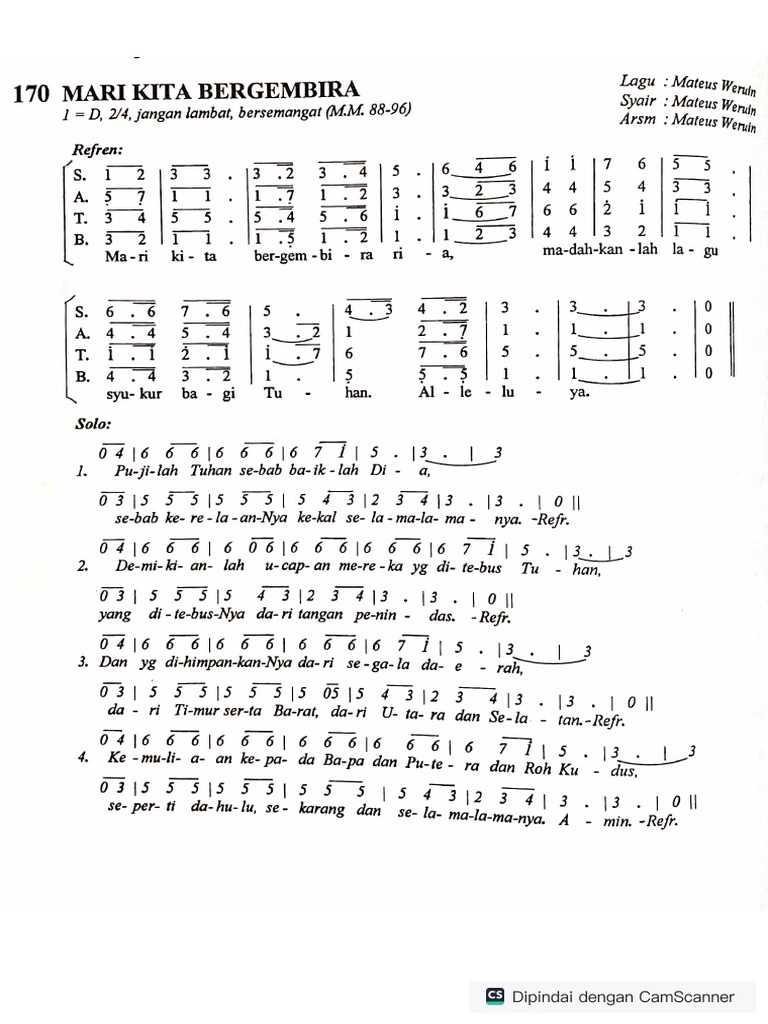 170 MARI KITA BERGEMBIRA
1 = D, 2/4, jangan lambat, bersemangat (M.M. 88-96)
Lagu : Mateus Weruin
Syair : Mateus Weruin
Arsm : Mateus Weruin
Refren:
S. 1 2 | 3 3 . | 3 . 2 3 . 4 | 5 . | 6 4 6 | i i | 7 6 | 5 5 . |
A. 5 7 | 1 1 . | 1 . 7 1 . 2 | 3 . | 3 2 3 | 4 4 | 5 4 | 3 3 . |
T. 3 4 | 5 5 . | 5 . 4 5 . 6 | i . | i 6 7 | 6 6 | 2 i | i i . |
B. 3 2 | 1 1 . | 1 . 5 1 . 2 | 1 . | 1 2 3 | 4 4 | 3 2 | 1 1 . |
Ma - ri ki - ta ber-gem - bi - ra ri - a, ma-dah-kan -lah la - gu
S. 6 . 6 7 . 6 | 5 . | 4 . 3 4 . 2 | 3 . | 3 . | 3 . | 0 ||
A. 4 . 4 5 . 4 | 3 . 2 | 1 2 . 7 | 1 . | 1 . | 1 . | 0 ||
T. i . i 2 . i | i . 7 | 6 7 . 6 | 5 . | 5 . | 5 . | 0 ||
B. 4 . 4 3 . 2 | 1 . | 5 5 . 5 | 1 . | 1 . | 1 . | 0 ||
syu- kur ba - gi Tu - han. Al - le - lu - ya.
Solo:
0 4 | 6 6 6 | 6 6 6 | 6 7 i | 5 . | 3 . | 3
1. Pu-ji-lah Tuhan se-bab ba-ik - lah Di - a,
0 3 | 5 5 5 | 5 5 5 | 5 4 3 | 2 3 4 | 3 . | 3 . | 0 ||
se-bab ke- re - la - an-Nya ke-kal se- la - ma-la- ma - nya. -Refr.
0 4 | 6 6 6 | 6 0 6 | 6 6 6 | 6 6 6 | 6 7 i | 5 . | 3 . | 3
2. De-mi-ki- an- lah u-cap- an me-re - ka yg di- te-bus Tu - han,
0 3 | 5 5 5 | 5 4 3 | 2 3 4 | 3 . | 3 . | 0 ||
yang di - te-bus-Nya da-ri tangan pe-nin - das. - Refr.
0 4 | 6 6 6 | 6 6 6 | 6 6 6 | 6 7 i | 5 . | 3 . | 3
3. Dan yg di-himpan-kan-Nya da-ri se-ga-la da- e - rah,
0 3 | 5 5 5 | 5 5 5 | 5 05 | 5 4 3 | 2 3 4 | 3 . | 3 . | 0 ||
da - ri Ti-mur ser-ta Ba-rat, da-ri U- ta- ra dan Se-la - tan.-Refr.
0 4 | 6 6 6 | 6 6 6 | 6 6 6 | 6 6 6 | 6 7 i | 5 . | 3 . | 3
4. Ke - mu-li- a- an ke- pa- da Ba-pa dan Pu-te - ra dan Roh Ku - dus,
0 3 | 5 5 5 | 5 5 5 | 5 5 5 | 5 4 3 | 2 3 4 | 3 . | 3 . | 0 ||
se- per- ti da-hu-lu, se - karang dan se- la- ma-la-ma-nya. A - min. -Refr.
CS Dipindai dengan CamScanner